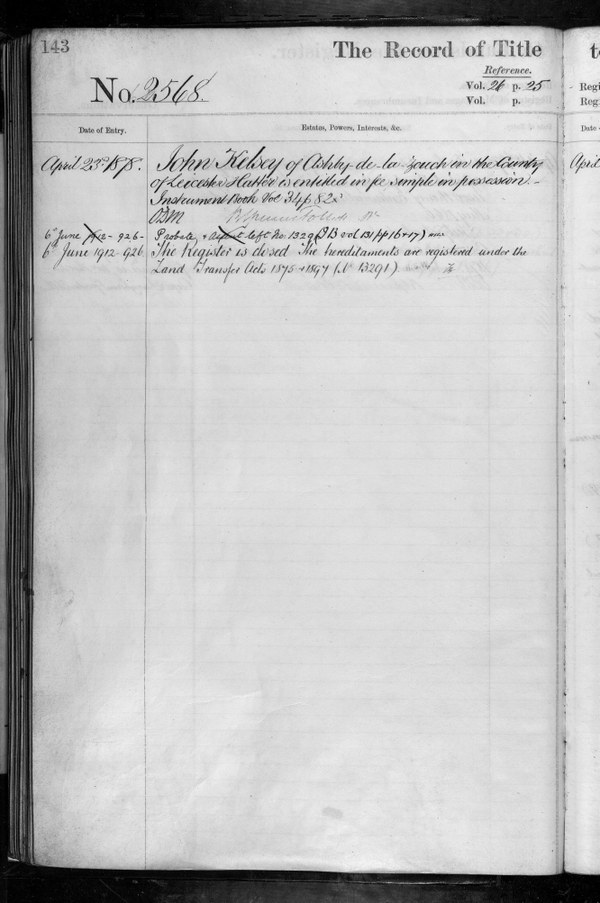 143
The Record of Title
No. 2568.
Reference.
Vol. 26 p. 25
Vol. p.
Date of Entry.
Estates, Powers, Interests, &c.
April 23rd 1878.
John Kelsey of Ashby-de-la-Zouch in the County
of Leicester Hatter is entitled in fee simple in possession.-
Instrument Book Vol 34 p 82
6th June 1912 - 926 -
Probate, & left No. 13291 vol 131 p 16 & 17)
6th June 1912 926
The Register is closed The hereditaments are registered under the
Land Transfer Acts 1875 & 1897 (No 13291)
t
Regi
Reg
Date
April